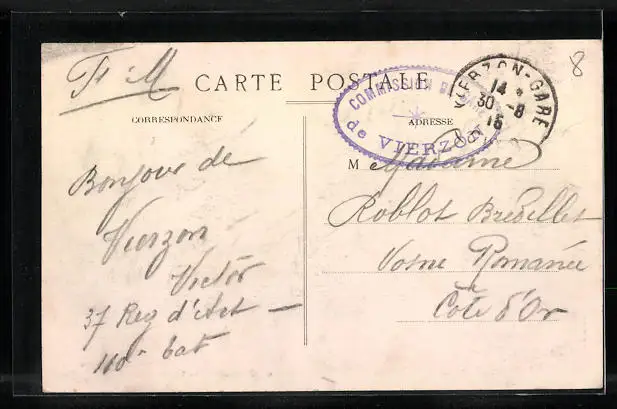 F. M
CARTE POSTALE
8
COMMISSION
de VIERZON
VIERZON-GARE
14 *
30 -8
15
CORRESPONDANCE
ADRESSE
Bonjour de
Vierzon
Victor
37 Reg d'Art —
110e bat
M Madame
Roblot
Vosne Romanée
Côte d'Or